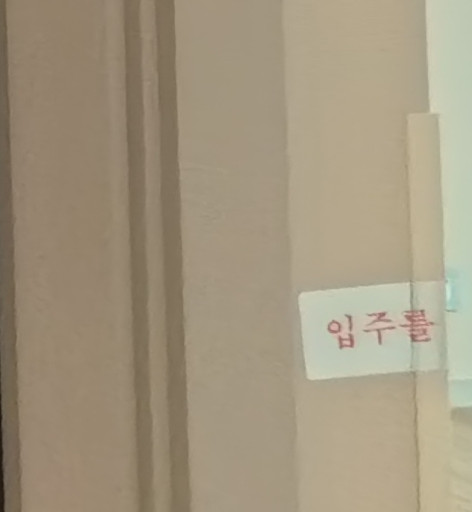 입주를